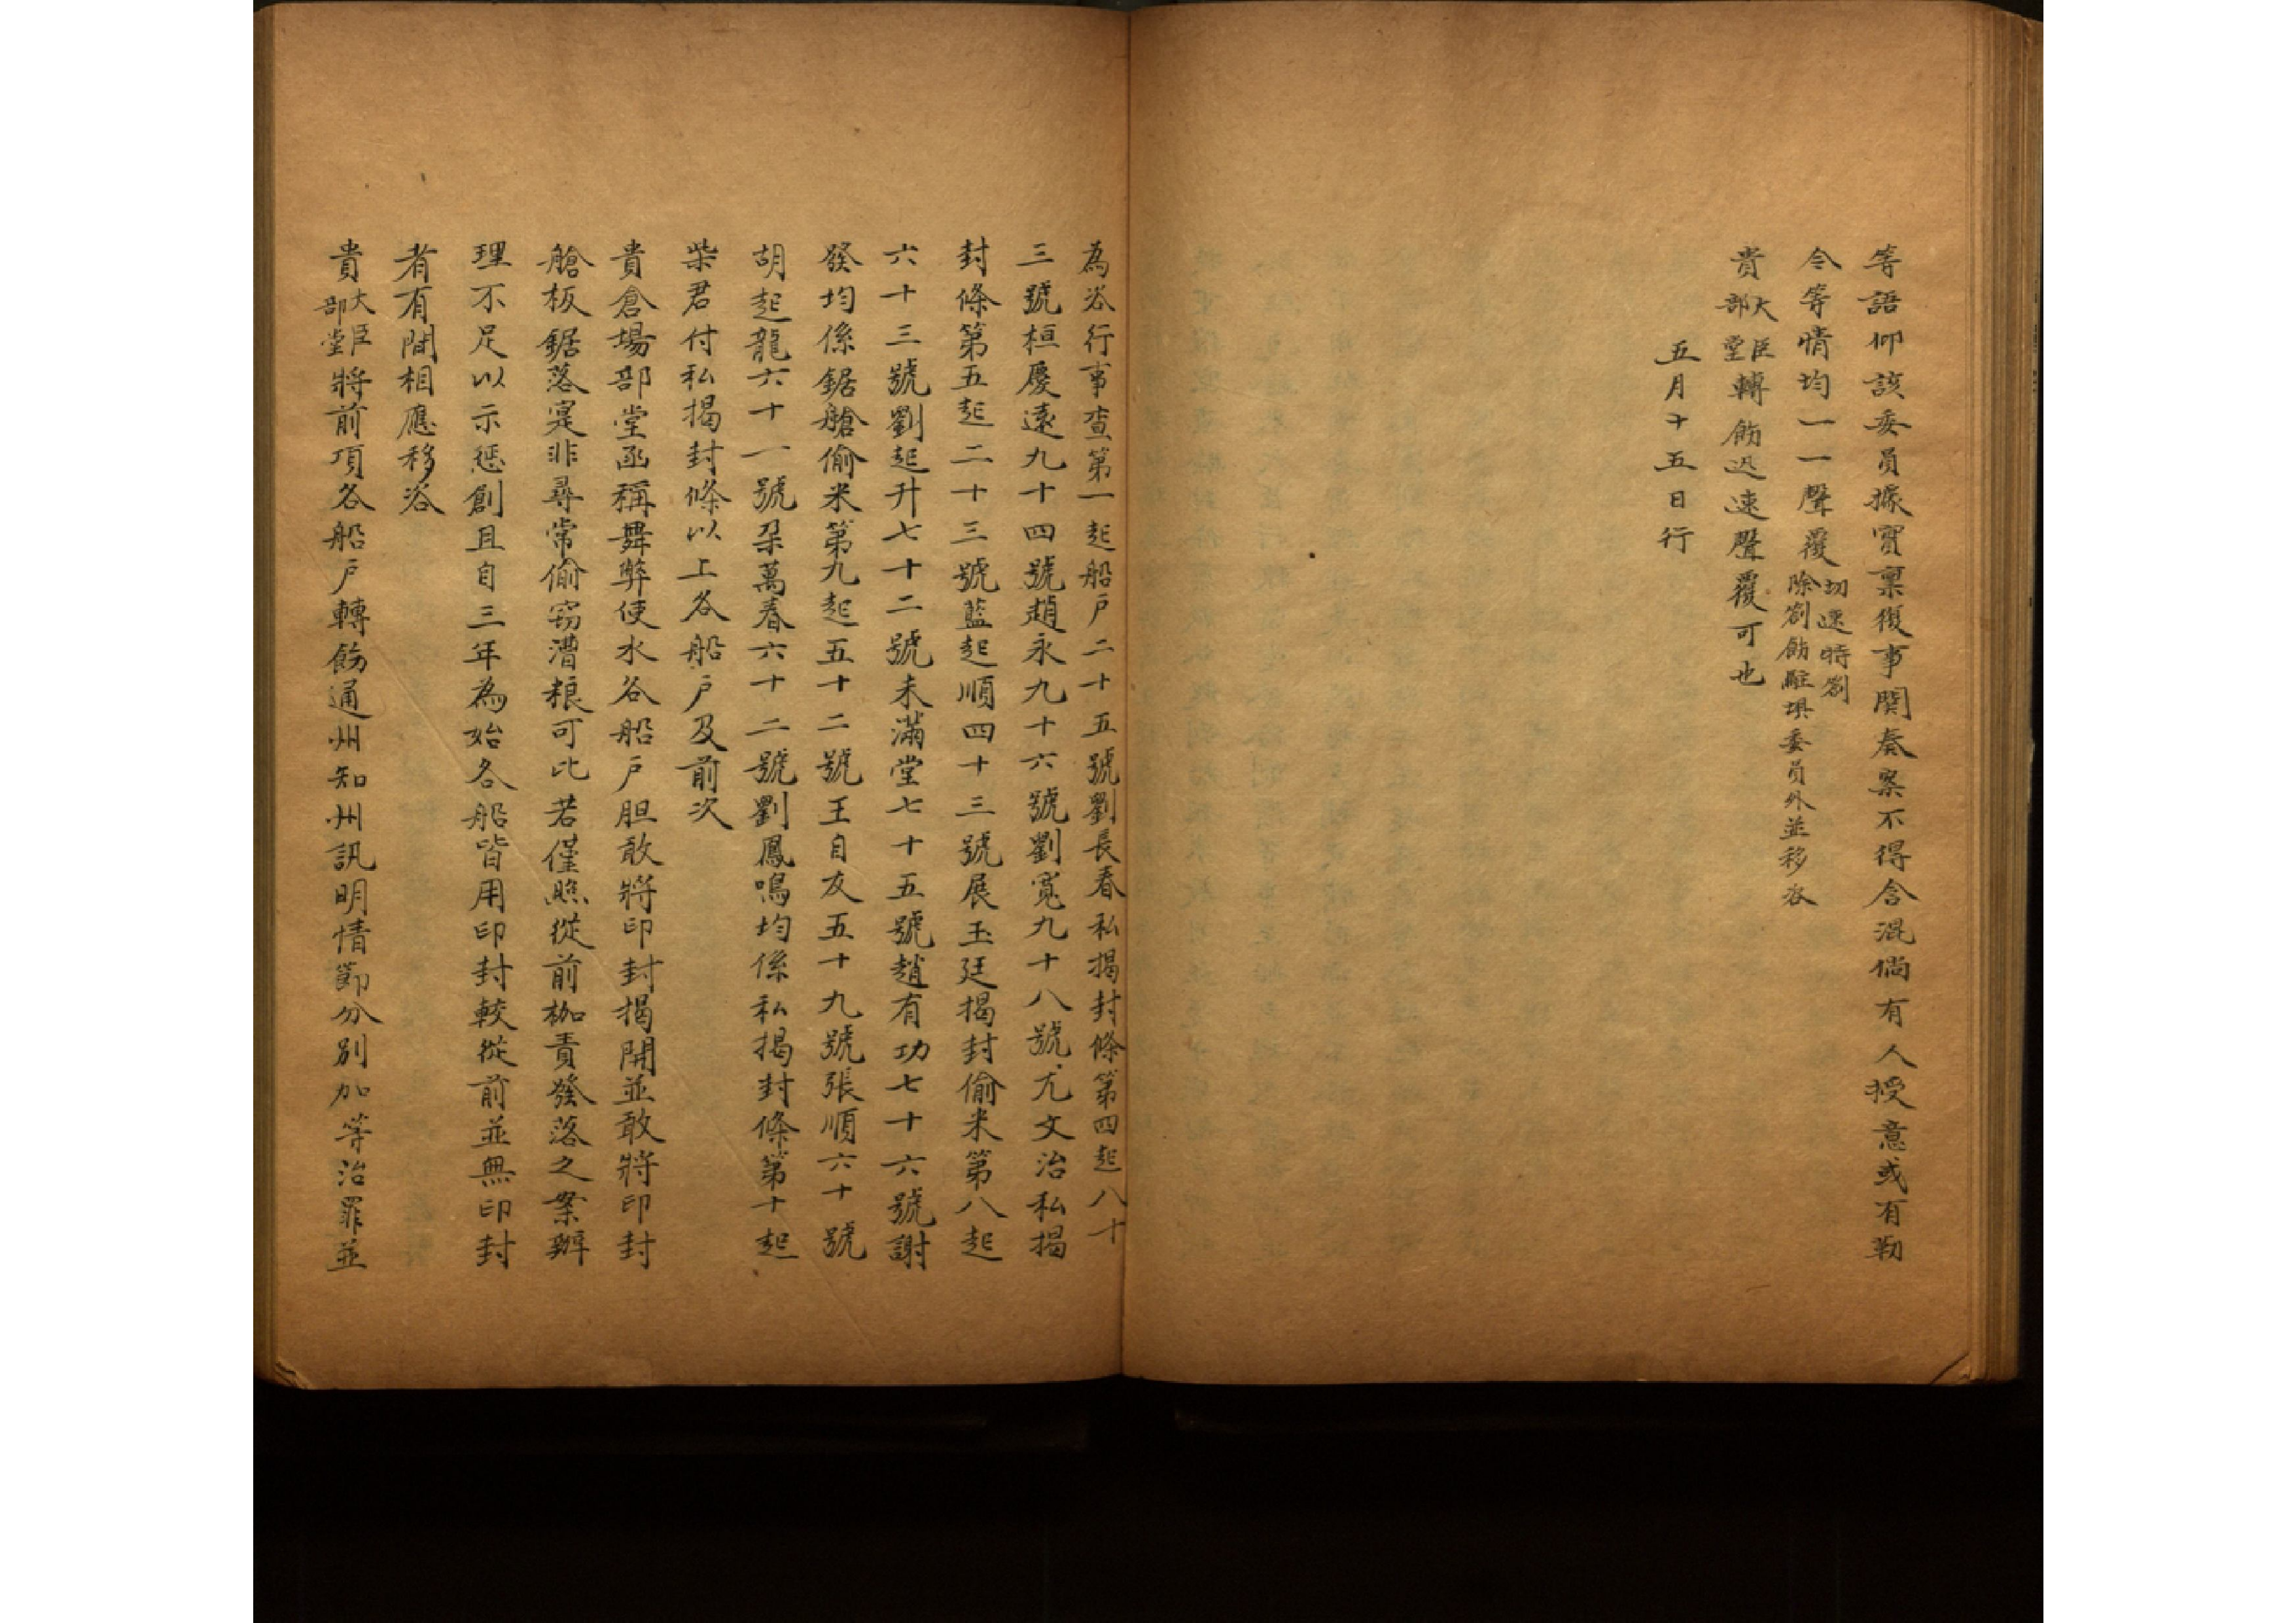 等語仰該委員據實稟復事關奏案不得含混倘有人授意或有勒
令等情均一一聲覆切速特劄
除劄飭駐壩委員外並移咨
貴大臣
部堂轉飭迅速聲覆可也
五月十五日行
為咨行事查第一起船戶二十五號劉長春私揭封條第四起八十
三號桓慶遠九十四號趙永九十六號劉寬九十八號亢文治私揭
封條第五起二十三號藍起順四十三號展玉廷揭封偷米第八起
六十三號劉起升七十二號未滿堂七十五號趙有功七十六號謝
發均係鋸艙偷米第九起五十二號王自友五十九號張順六十號
胡起龍六十一號朶萬春六十二號劉鳳鳴均係私揭封條第十起
柴君付私揭封條以上各船戶及前次
貴倉場部堂函稱舞弊使水各船戶胆敢將印封揭開並敢將印封
艙板鋸落寔非尋常偷窃漕粮可比若僅照從前枷責發落之案辦
理不足以示懲創且自三年為始各船皆用印封較從前並無印封
者有間相應移咨
貴大臣
部堂將前項各船戶轉飭通州知州訊明情節分別加等治罪並